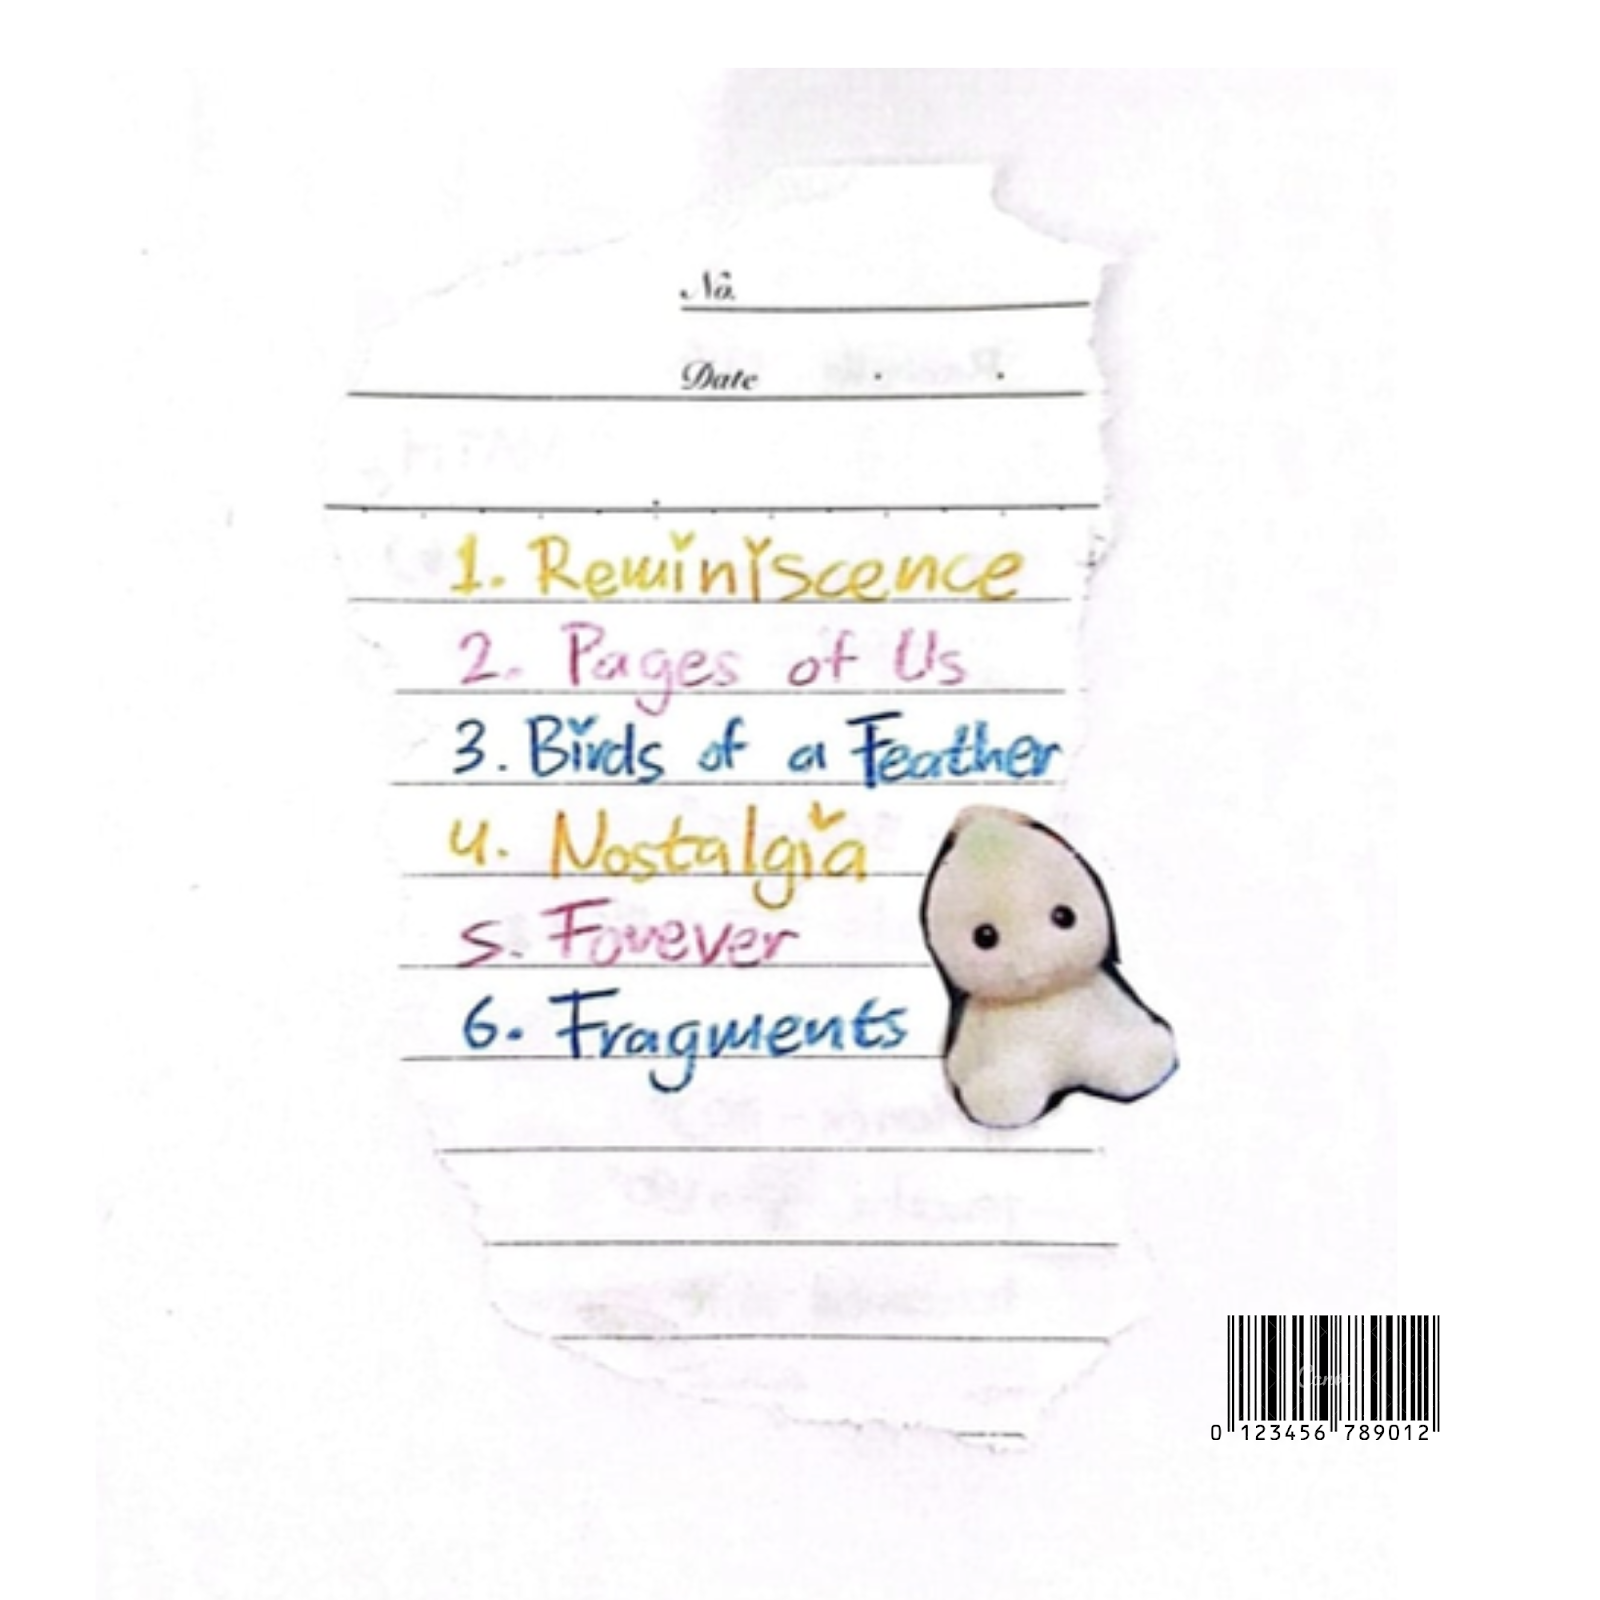 No.
Date
1. Reminiscence
2. Pages of Us
3. Birds of a Feather
4. Nostalgia
5. Forever
6. Fragments
Canva
0 123456 789012